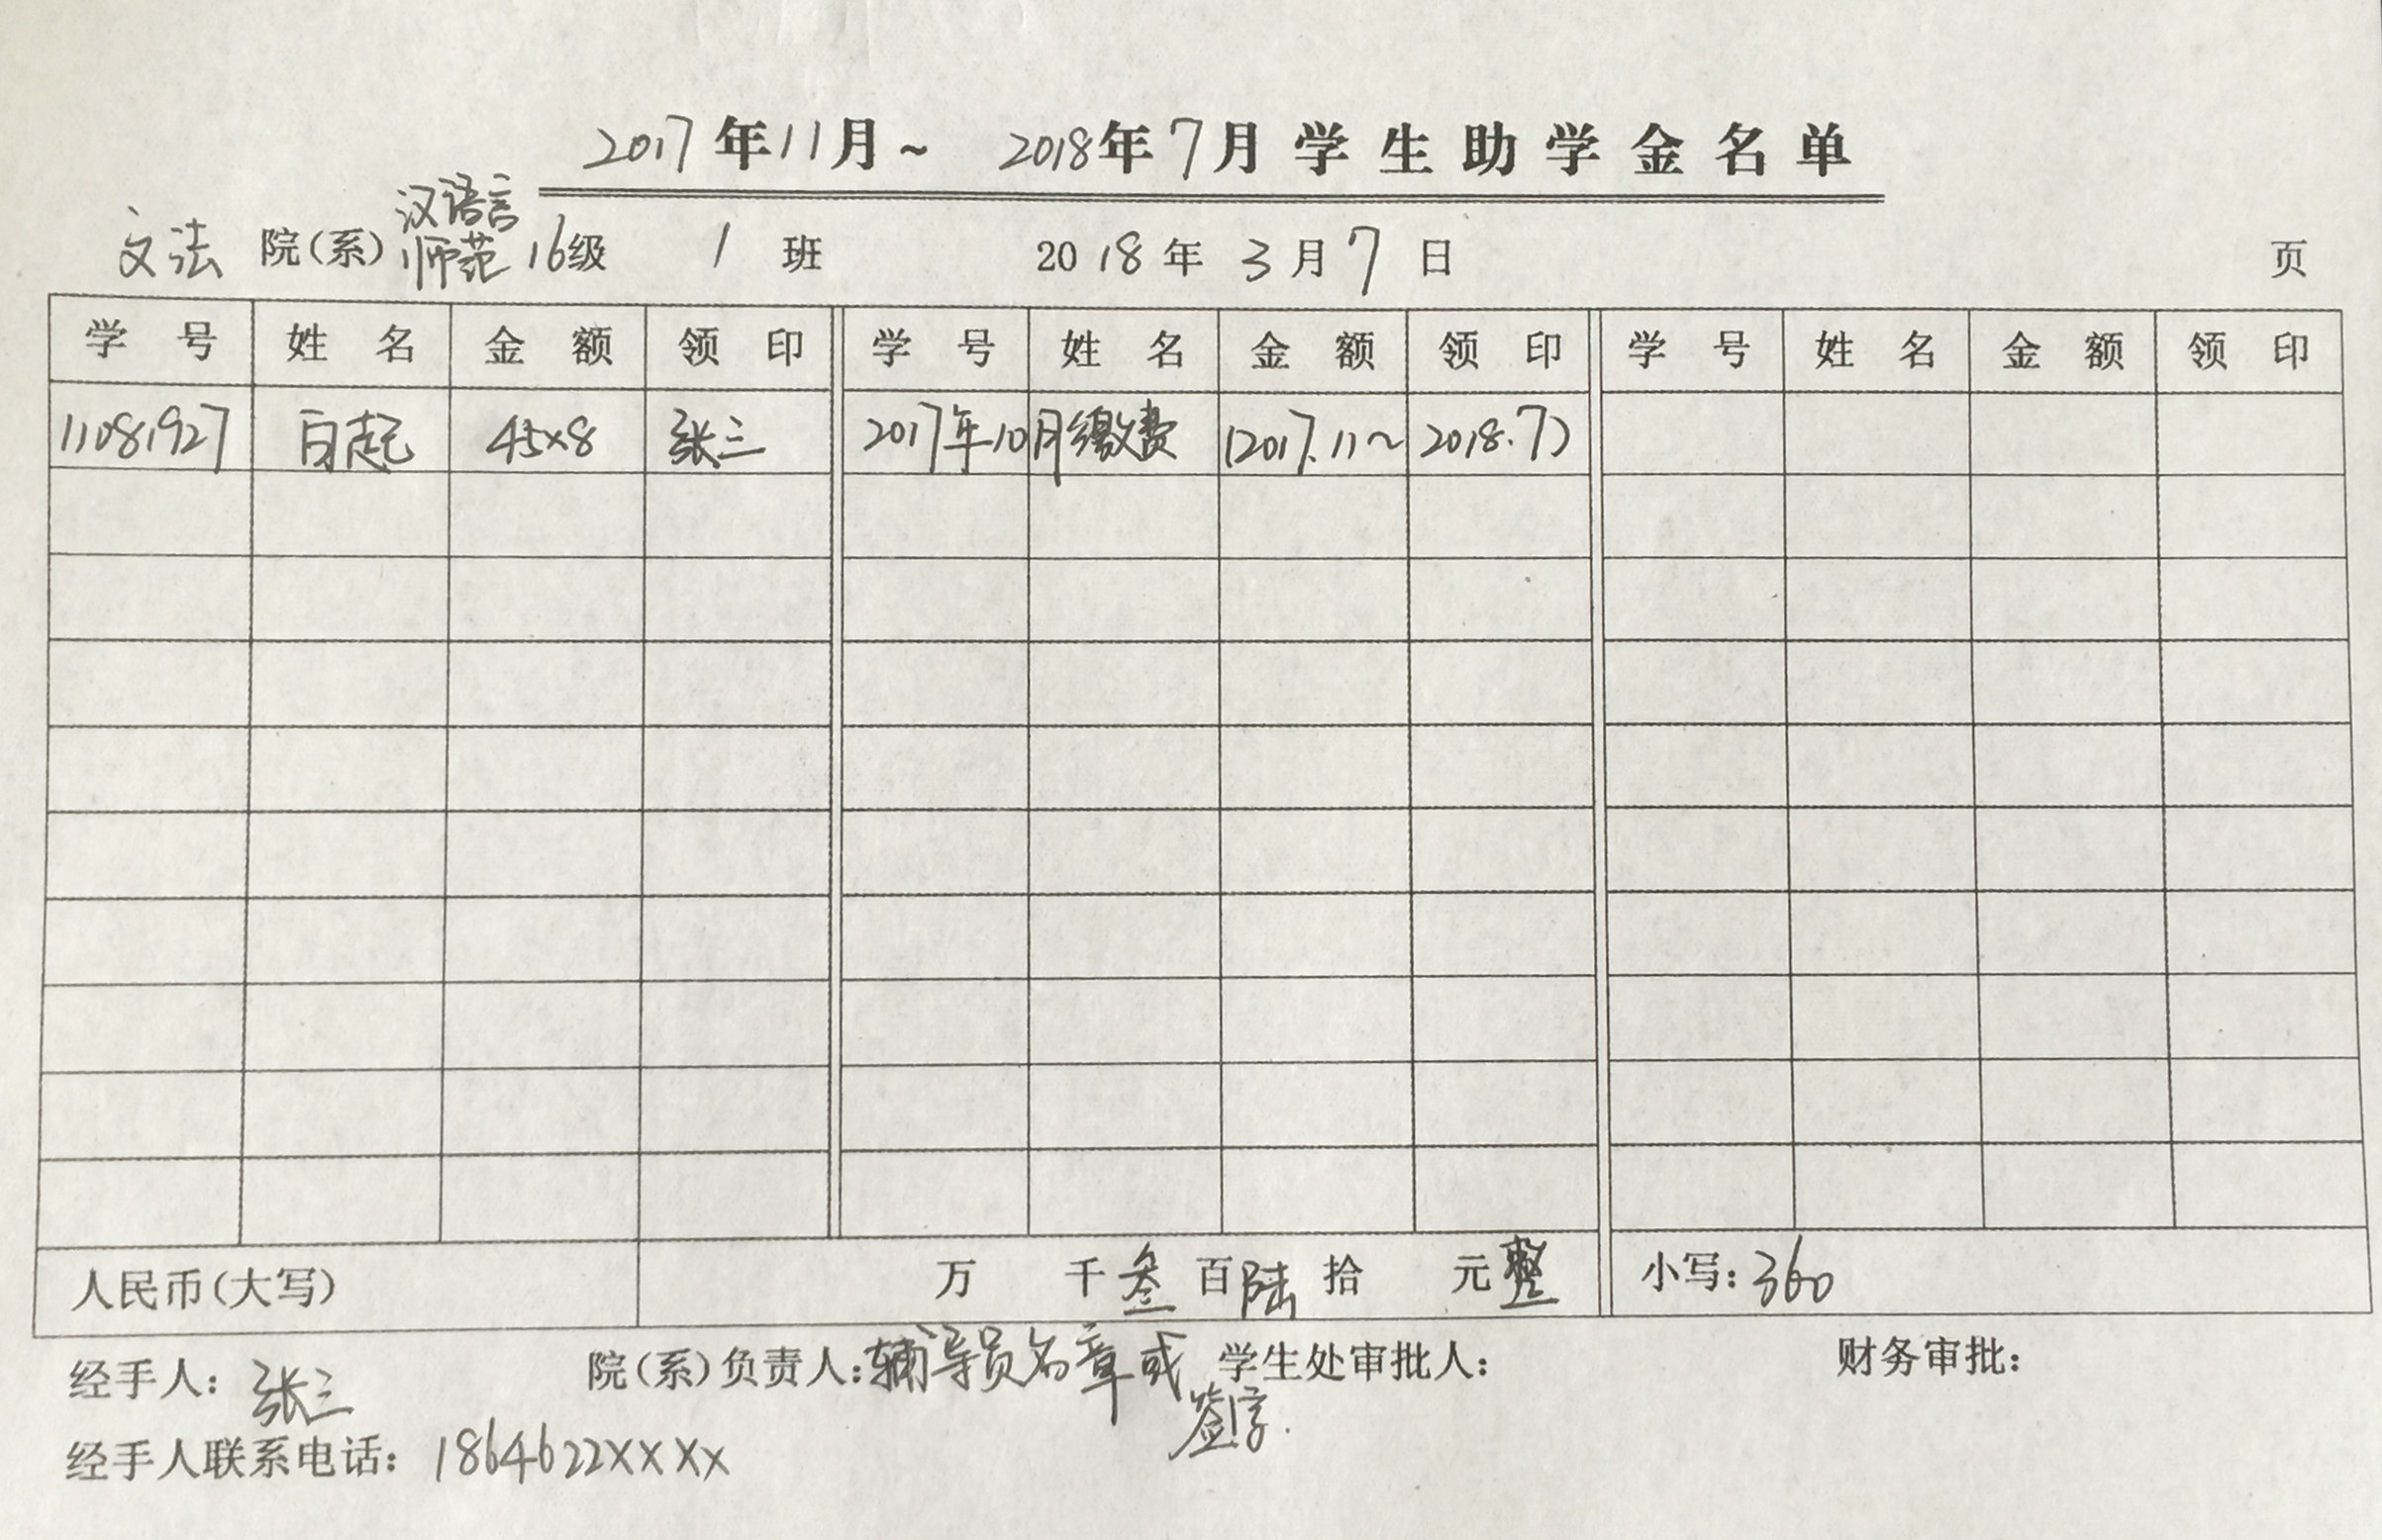 2017年11月~ 2018年7月学生助学金名单
文法 院(系) 汉语言师范 16级 1 班 2018年3月7日 页
学号 姓名 金额 领印 学号 姓名 金额 领印 学号 姓名 金额 领印
11081927 白起 45×8 张三 2017年10月缴费 (2017.11~2018.7)
人民币(大写) 万 千叁百陆拾 元整 小写:360
经手人:张三 院(系)负责人:辅导员名章或签字. 学生处审批人: 财务审批:
经手人联系电话:1864622××××